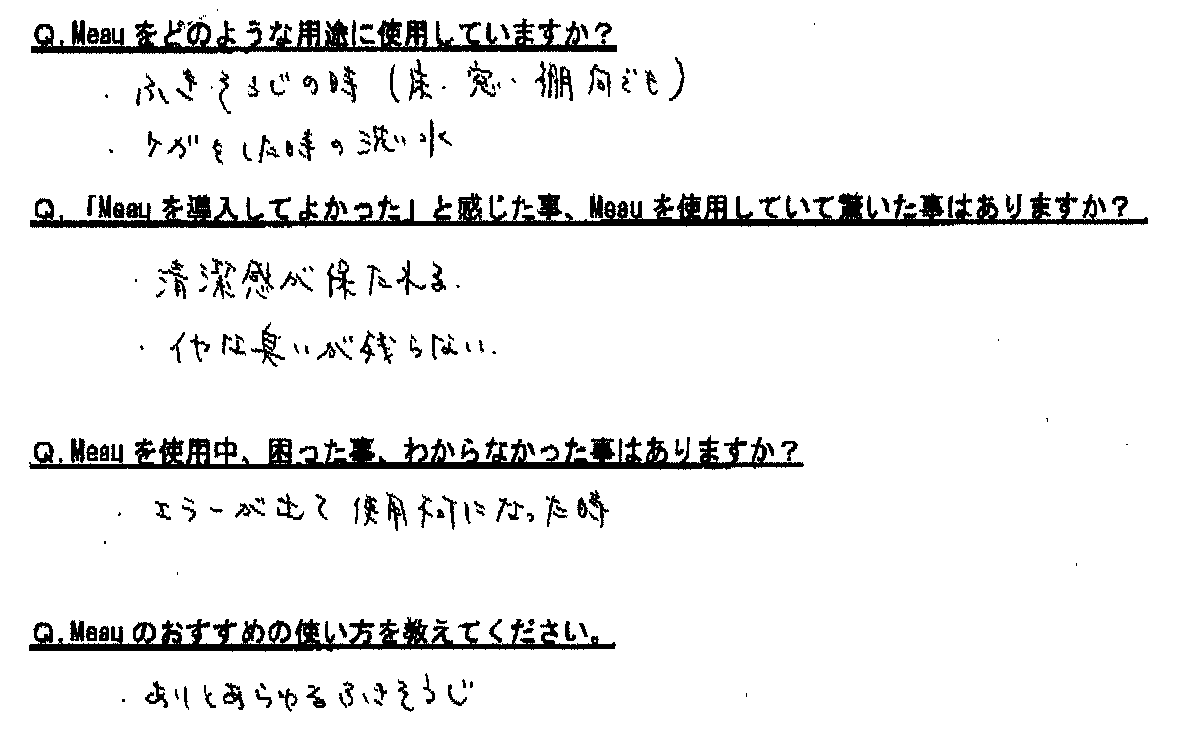 Q.Meauをどのような用途に使用していますか？
・ふきそうじの時（床・窓・棚何でも）
・ケガをした時の洗い水
Q.「Meauを導入してよかった」と感じた事、Meauを使用していて驚いた事はありますか？
・清潔感が保たれる.
・イヤな臭いが残らない.
Q.Meauを使用中、困った事、わからなかった事はありますか？
・エラーが出て使用不可になった時
Q.Meauのおすすめの使い方を教えてください。
・ありとあらゆるふきそうじ